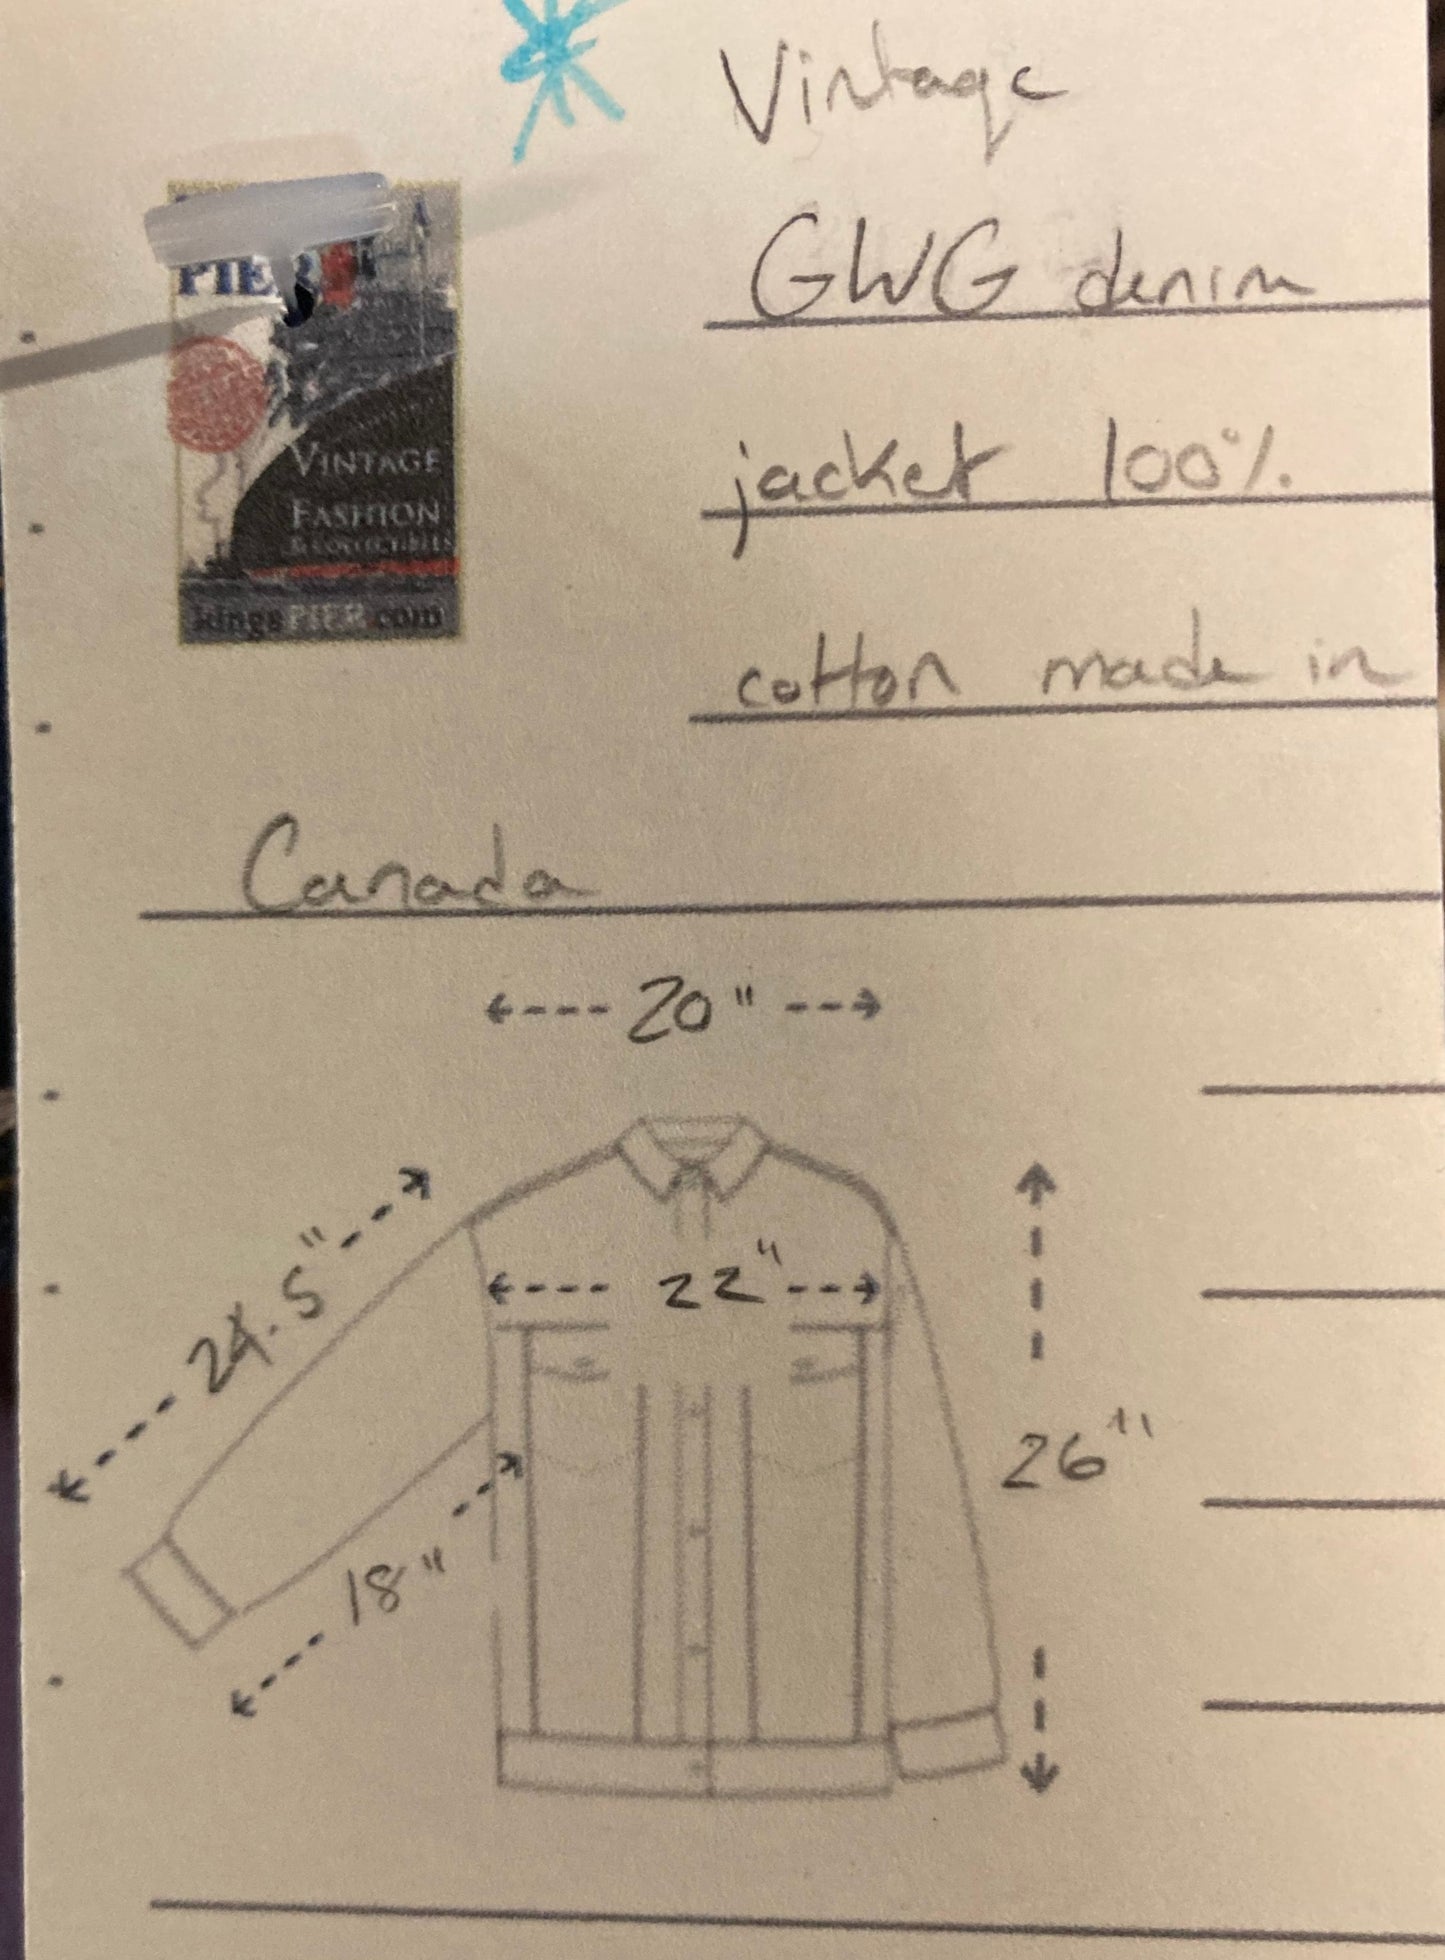 Vintage
GWG denim
PIER
jacket 100%
VINTAGE
FASHION
& COLLECTIBLES
kingsPIER.com
cotton made in
Canada
20"
24.5"
22"
26"
18"